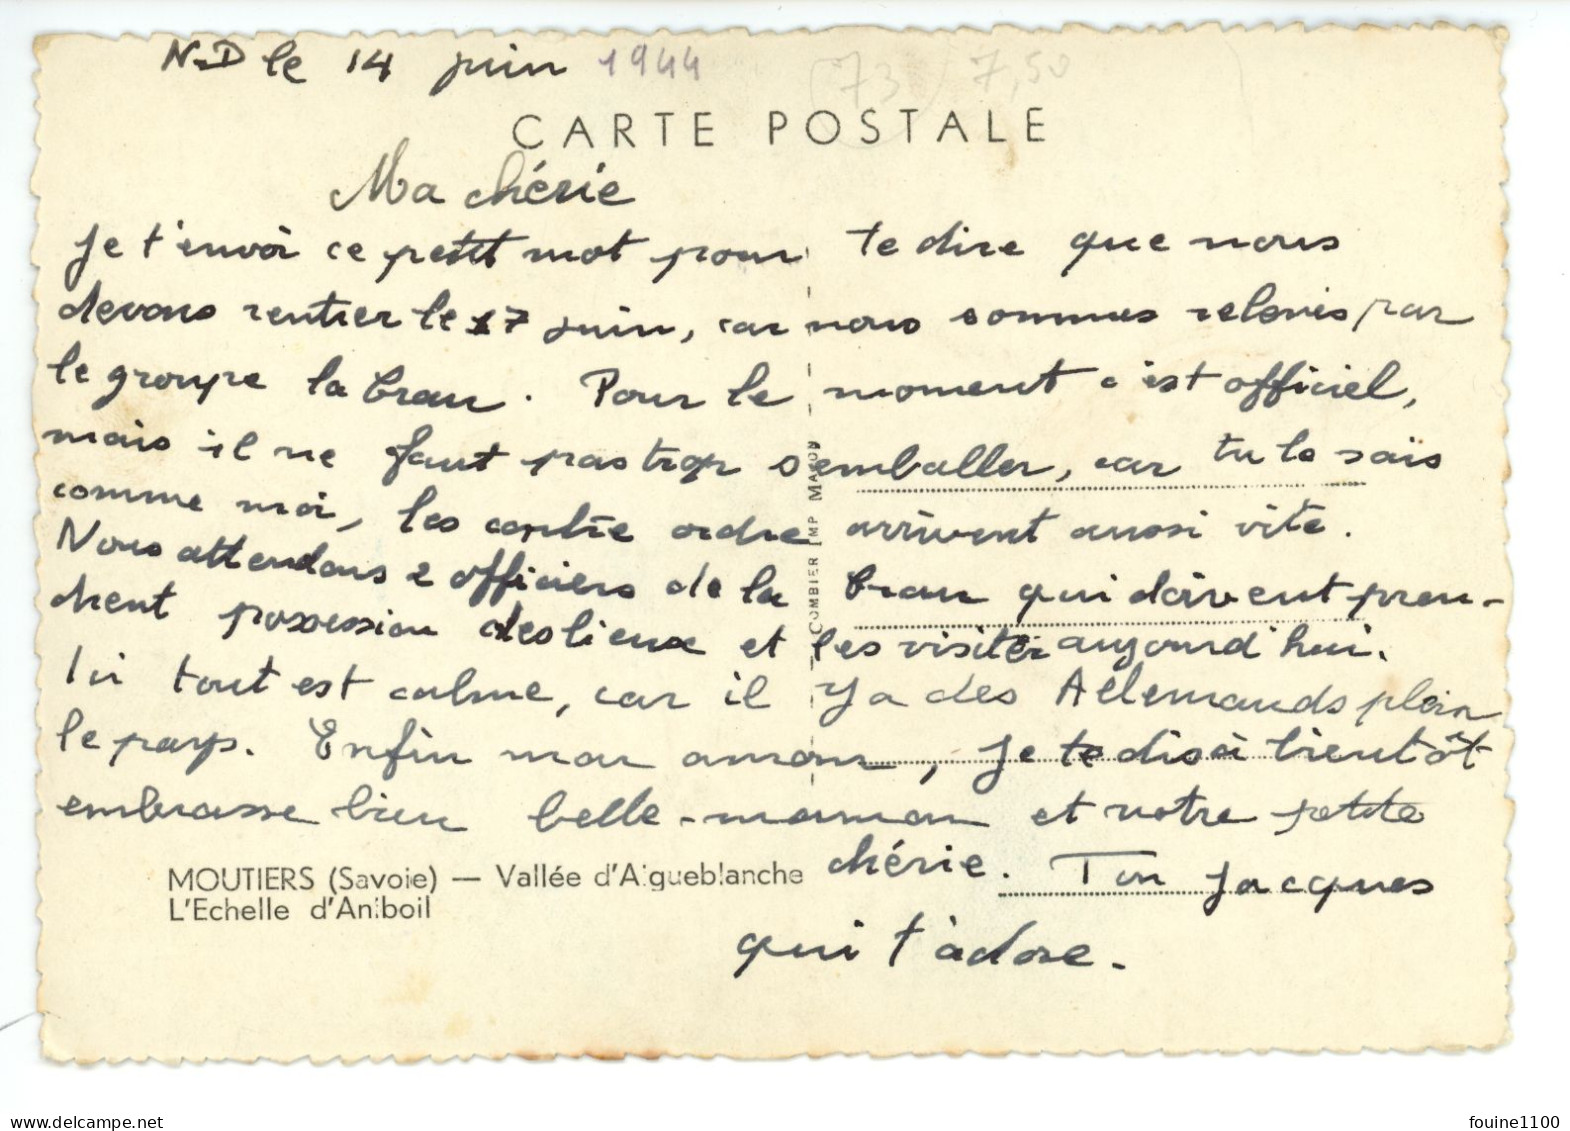 N.D le 14 juin 1944
(73) 7,50
CARTE POSTALE
Ma chérie
Je t'envoi ce petit mot pour te dire que nous
devons rentrer le 17 juin, car nous sommes relevés par
le groupe la bran. Pour le moment c'est officiel,
mais il ne faut pas trop s'emballer, car tu le sais
comme moi, les contre ordre arrivent aussi vite.
Nous attendons 2 officiers de la bran qui doivent pren-
drent possession des lieux et les visiter aujourd'hui.
Ici tout est calme, car il y a des Allemands plein
le pays. Enfin mon amour, je te dis à bientôt
embrasse bien belle-maman et notre petite
chérie. Ton Jacques
qui t'adore.
MOUTIERS (Savoie) — Vallée d'Aigueblanche
L'Echelle d'Aniboil
COMBIER IMP MACON
delcampe.net
fouine1100